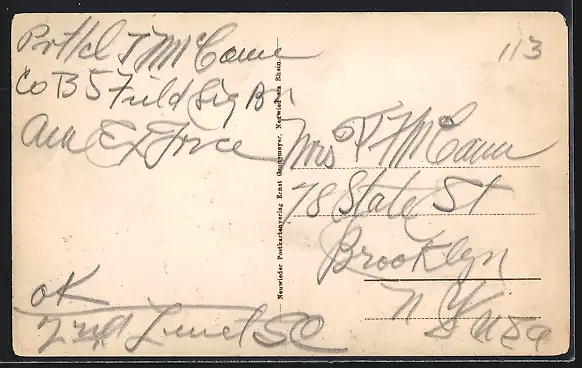 113
Pvt Hd T McCann
Co B 5 Field Sig Bn
Am Ex Force
Neuwieder Postkartenverlag Ernst Guggemeyer, Neuwied am Rhein.
Mrs T McCann
78 State St
Brooklyn
N Y USA
OK
2nd Lieut SC